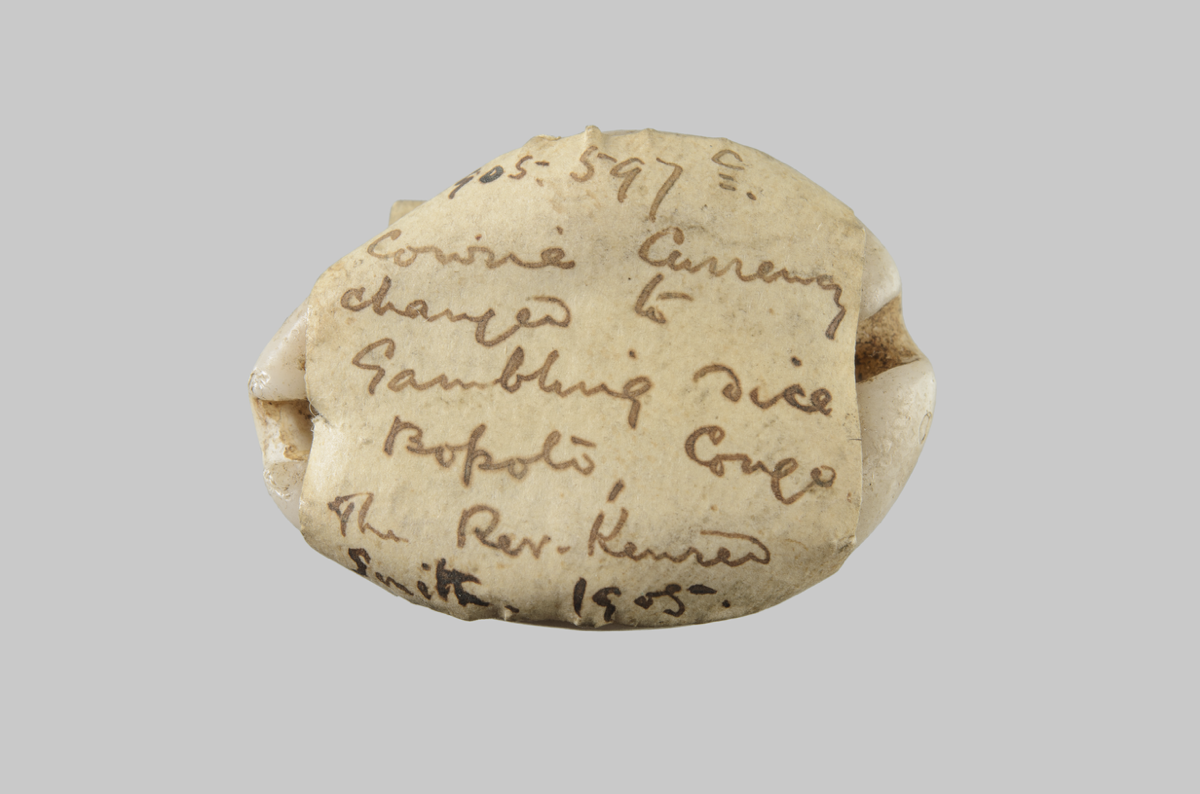 905. 597 c.
Cowrie Currency
changed to
Gambling dice
Bopoto, Congo
The Rev. Kenred
Smith, 1905.